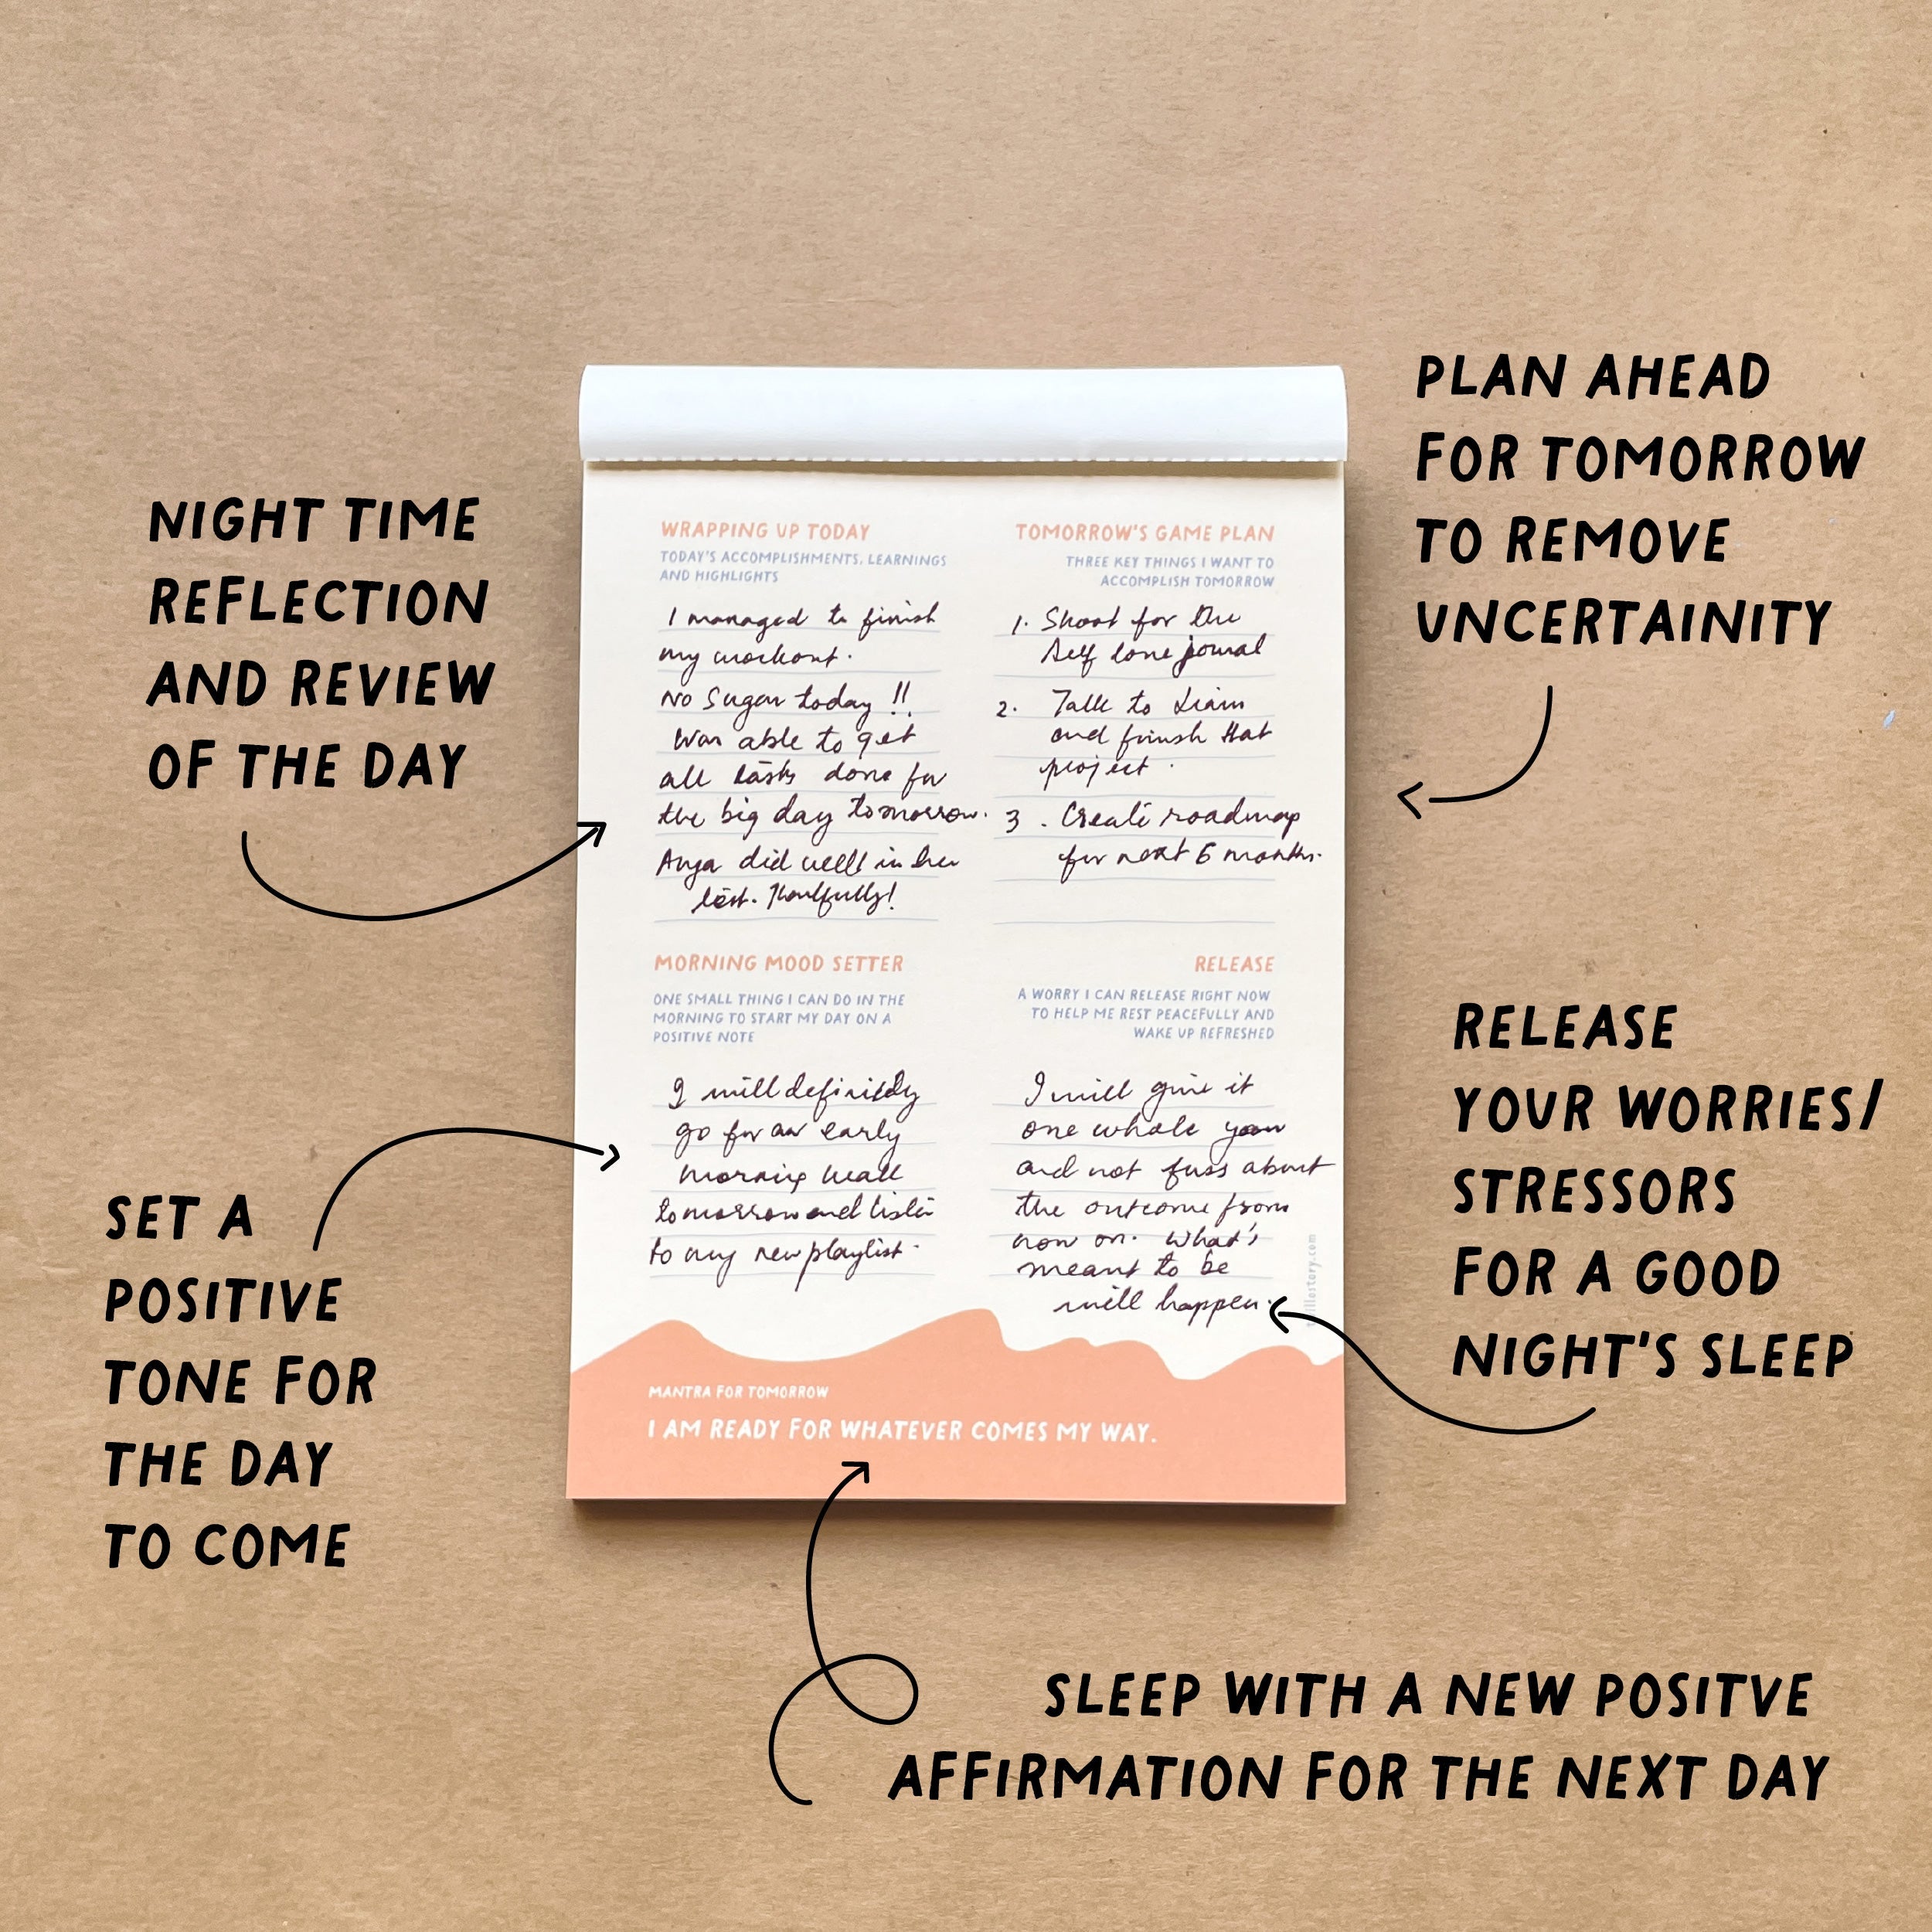 NIGHT TIME
REFLECTION
AND REVIEW
OF THE DAY
PLAN AHEAD
FOR TOMORROW
TO REMOVE
UNCERTAINITY
WRAPPING UP TODAY
TODAY'S ACCOMPLISHMENTS, LEARNINGS
AND HIGHLIGHTS
I managed to finish
my workout.
No Sugar today !!
Was able to get
all tasks done for
the big day tomorrow.
did well in her
test. Thankfully!
TOMORROW'S GAME PLAN
THREE KEY THINGS I WANT TO
ACCOMPLISH TOMORROW
1. Shoot for the
Self love
2. Talk to Liam
and finish that
project.
3. Create roadmap
for next 6 months.
MORNING MOOD SETTER
ONE SMALL THING I CAN DO IN THE
MORNING TO START MY DAY ON A
POSITIVE NOTE
I will definitely
go for an early
morning walk
tomorrow and listen
to my new playlist.
RELEASE
A WORRY I CAN RELEASE RIGHT NOW
TO HELP ME REST PEACEFULLY AND
WAKE UP REFRESHED
I will give it
one whole year
and not fuss about
the outcome from
now on. What's
meant to be
will happen.
MANTRA FOR TOMORROW
I AM READY FOR WHATEVER COMES MY WAY.
SET A
POSITIVE
TONE FOR
THE DAY
TO COME
RELEASE
YOUR WORRIES/
STRESSORS
FOR A GOOD
NIGHT'S SLEEP
SLEEP WITH A NEW POSITVE
AFFIRMATION FOR THE NEXT DAY